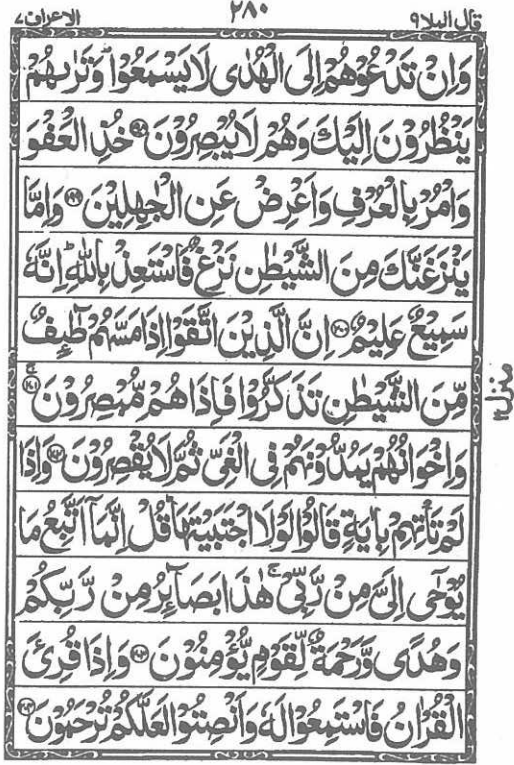 قال الملا۹ ۲۸۰ الاعراف۷
وَاِنْ تَدْعُوْهُمْ اِلَى الْهُدٰى لَا يَسْمَعُوْا ؕ وَتَرٰىهُمْ
يَنْظُرُوْنَ اِلَيْكَ وَهُمْ لَا يُبْصِرُوْنَ ﴿۱۹۸﴾ خُذِ الْعَفْوَ
وَاْمُرْ بِالْعُرْفِ وَاَعْرِضْ عَنِ الْجٰهِلِيْنَ ﴿۱۹۹﴾ وَاِمَّا
يَنْزَغَنَّكَ مِنَ الشَّيْطٰنِ نَزْغٌ فَاسْتَعِذْ بِاللّٰهِ ؕ اِنَّهٗ
سَمِيْعٌ عَلِيْمٌ ﴿۲۰۰﴾ اِنَّ الَّذِيْنَ اتَّقَوْا اِذَا مَسَّهُمْ طٰٓئِفٌ
مِّنَ الشَّيْطٰنِ تَذَكَّرُوْا فَاِذَا هُمْ مُّبْصِرُوْنَ ۚ ﴿۲۰۱﴾
وَاِخْوَانُهُمْ يَمُدُّوْنَهُمْ فِى الْغَىِّ ثُمَّ لَا يُقْصِرُوْنَ ﴿۲۰۲﴾ وَاِذَا
لَمْ تَاْتِهِمْ بِاٰيَةٍ قَالُوْا لَوْلَا اجْتَبَيْتَهَا ؕ قُلْ اِنَّمَاۤ اَتَّبِعُ مَا
يُوْحٰٓى اِلَىَّ مِنْ رَّبِّىْ ۚ هٰذَا بَصَآئِرُ مِنْ رَّبِّكُمْ
وَهُدًى وَّرَحْمَةٌ لِّقَوْمٍ يُّؤْمِنُوْنَ ﴿۲۰۳﴾ وَاِذَا قُرِئَ
الْقُرْاٰنُ فَاسْتَمِعُوْا لَهٗ وَاَنْصِتُوْا لَعَلَّكُمْ تُرْحَمُوْنَ ﴿۲۰۴﴾
منزل۲